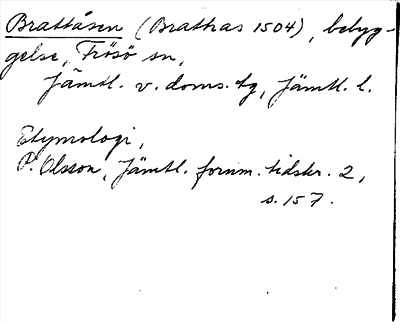 Brattåsen (Brathas 1504), bebyg-
gelse, Frösö sn,
Jämtl. v. doms. tg, Jämtl. l.
Etymologi,
P. Olsson, Jämtl. fornm. tidskr. 2,
s. 157.